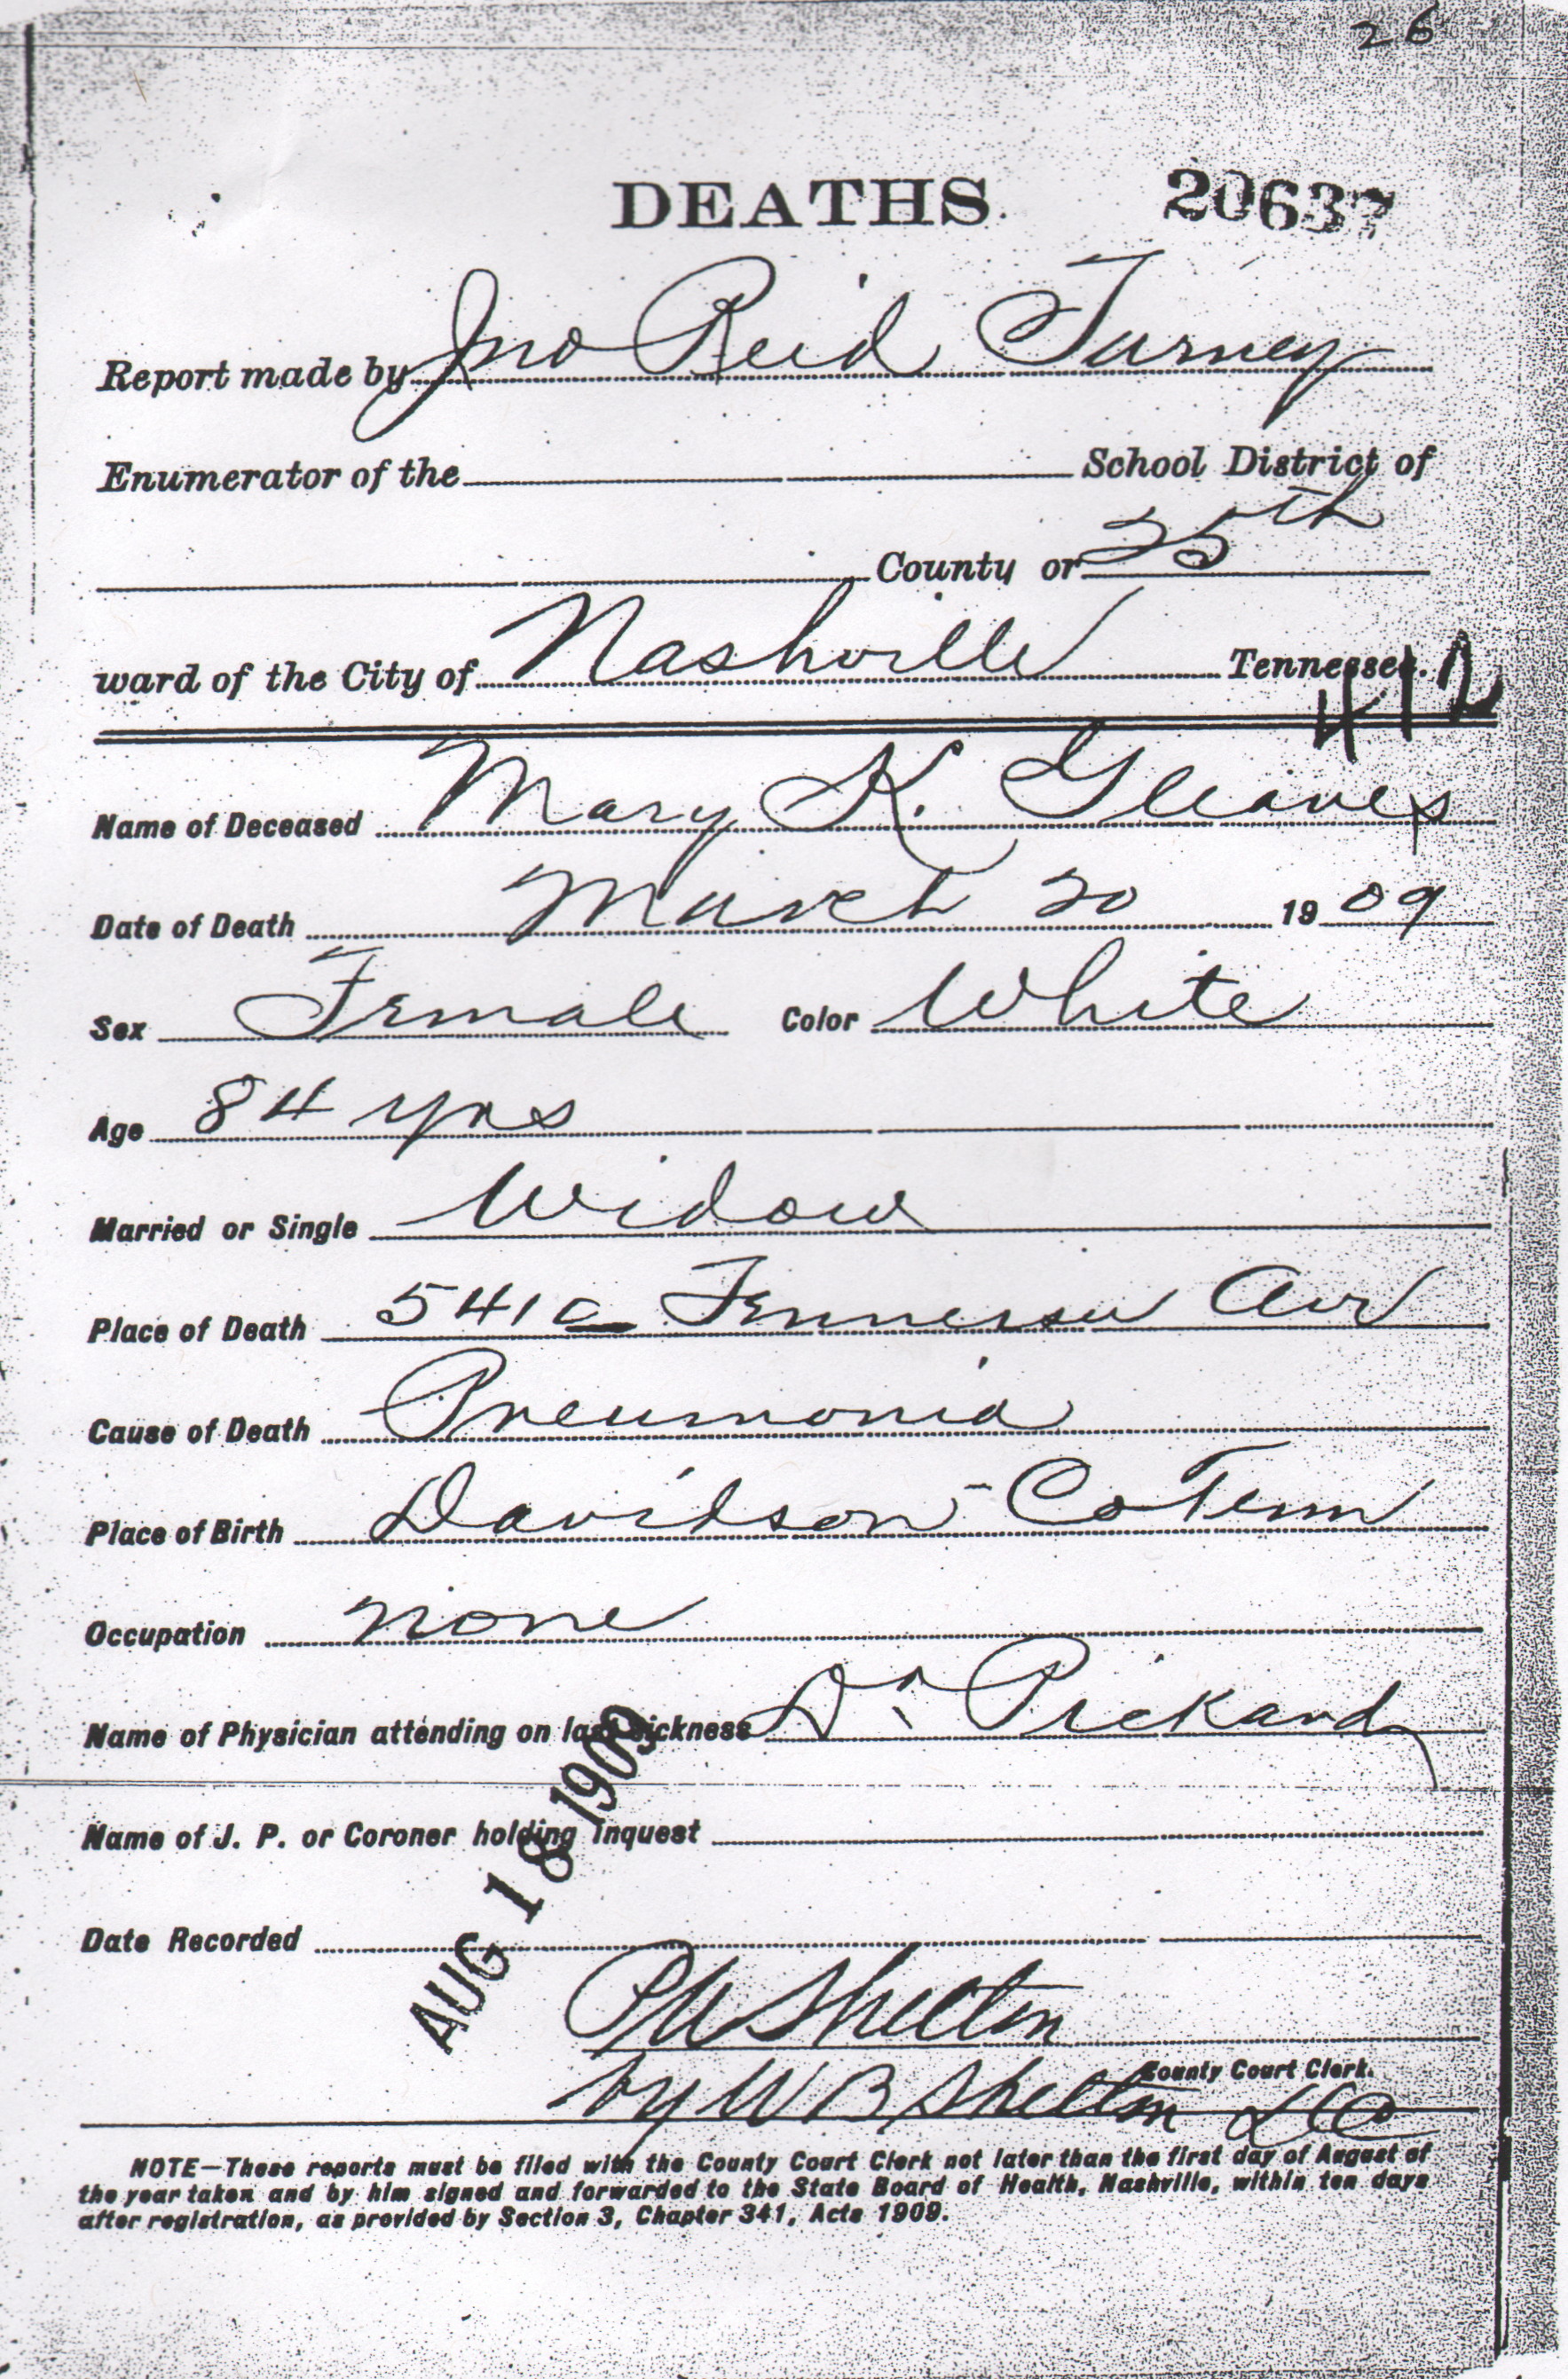 26
DEATHS. 20637
Report made by Jno Reid Turney
Enumerator of the School District of
County or 25th
ward of the City of Nashville Tennessee.
412
Name of Deceased Mary K. Gleaves
Date of Death March 20 1909
Sex Female Color White
Age 84 yrs
Married or Single Widow
Place of Death 5410 Tennessee Ave
Cause of Death Pneumonia
Place of Birth Davidson Co Tenn
Occupation none
Name of Physician attending on last sickness Dr Pickard
Name of J. P. or Coroner holding inquest
Date Recorded AUG 18 1909
PW Shelton
County Court Clerk.
by W B Shelton DC
NOTE—These reports must be filed with the County Court Clerk not later than the first day of August of
the year taken and by him signed and forwarded to the State Board of Health, Nashville, within ten days
after registration, as provided by Section 3, Chapter 341, Acts 1909.